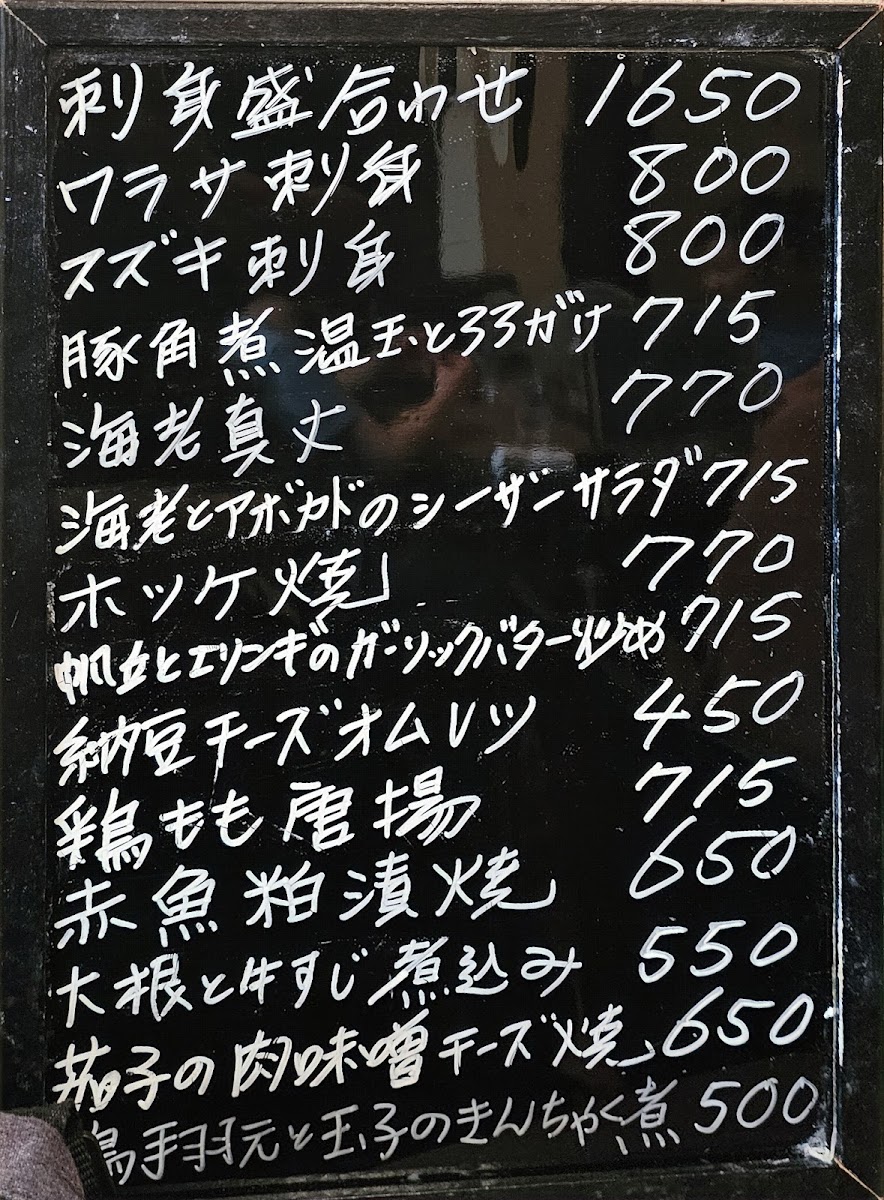 刺身盛合わせ 1650
ワラサ刺身 800
スズキ刺身 800
豚角煮温玉とろろがけ 715
海老真丈 770
海老とアボカドのシーザーサラダ 715
ホッケ焼 770
帆立とエリンギのガーリックバター炒め 715
納豆チーズオムレツ 450
鶏もも唐揚 715
赤魚粕漬焼 650
大根と牛すじ煮込み 550
茄子の肉味噌チーズ焼 650
鳥手羽元と玉子のきんちゃく煮 500